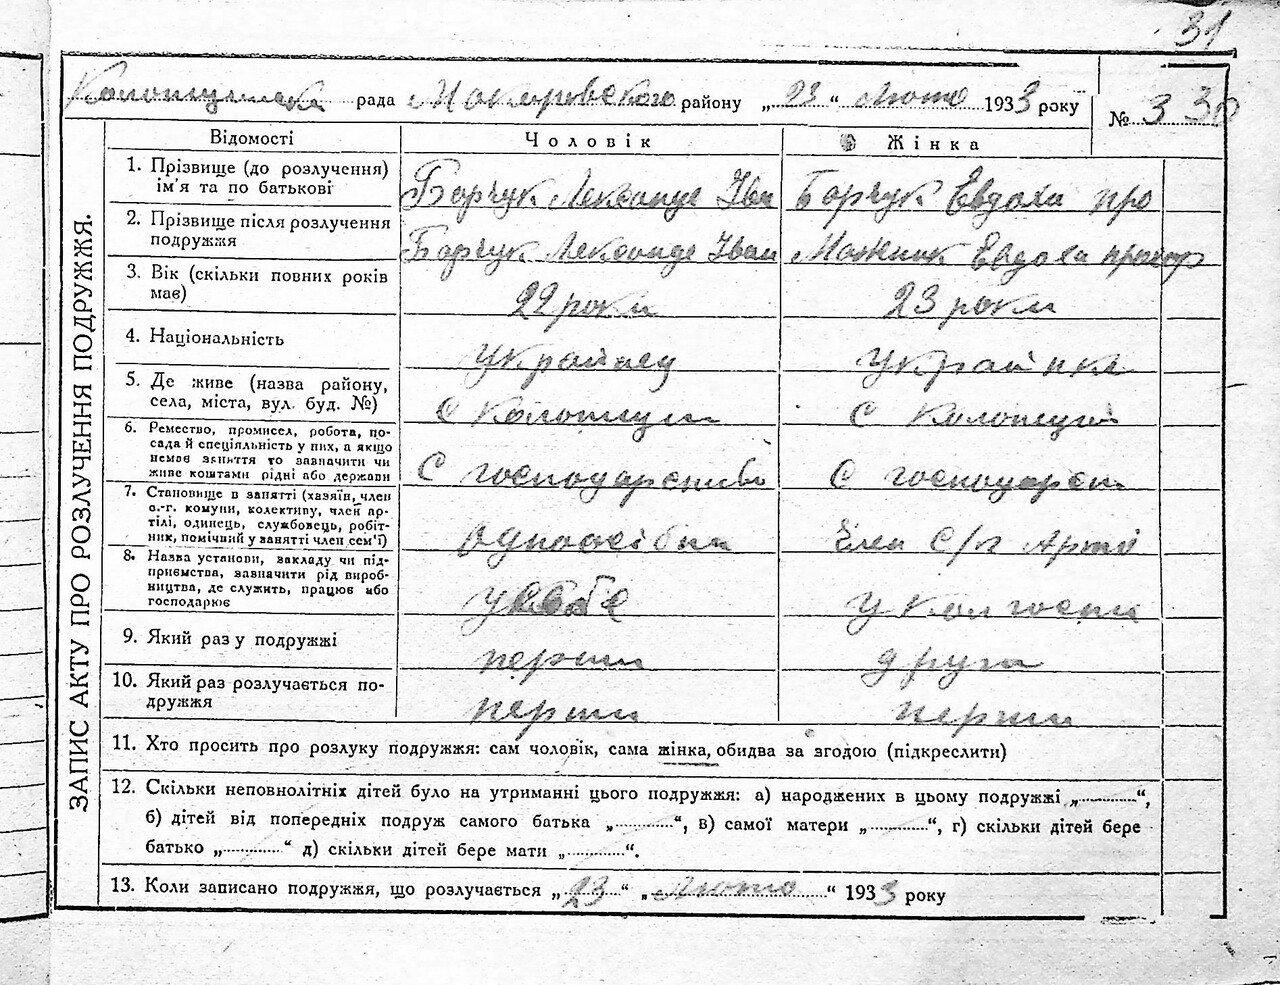 31
Колонщинська рада Макаровського району „23“ Люто 1933 року
№ 3 30
ЗАПИС АКТУ ПРО РОЗЛУЧЕННЯ ПОДРУЖЖЯ.
Відомості Чоловік Жінка
1. Прізвище (до розлучення) ім'я та по батькові
Борчук Лександе Іван Борчук Евдоха про
2. Прізвище після розлучення подружжя
Борчук Лександе Іван Можник Евдоха прохор
3. Вік (скільки повних років має)
22 роки 23 роки
4. Національність
Українец Українка
5. Де живе (назва району, села, міста, вул. буд. №)
С Колонщин С Колонщин
6. Ремество, промисел, робота, по-
сада й спеціяльність у них, а якщо
немає заняття то зазначити чи
живе коштами рідні або держави
С господарство С господарст
7. Становище в занятті (хазяїн, член
с.-г. комуни, колективу, член ар-
тілі, одинець, службовець, робіт-
ник, помічний у занятті член сем'ї)
Одноосібни Член С/г Арті
8. Назва установи, закладу чи під-
приємства, зазначити рід вироб-
ництва, де служить, працює або
господарює
У себе У колгоспи
9. Який раз у подружжі
перши друга
10. Який раз розлучається по-
дружжя
перши перши
11. Хто просить про розлуку подружжя: сам чоловік, сама жінка, обидва за згодою (підкреслити)
12. Скільки неповнолітніх дітей було на утриманні цього подружжя: а) народжених в цьому подружжі „............“,
б) дітей від попередніх подруж самого батька „............“, в) самої матери „............“, г) скільки дітей бере
батько „............“ д) скільки дітей бере мати „............“.
13. Коли записано подружжя, що розлучається „23“ „Люто“ 1933 року